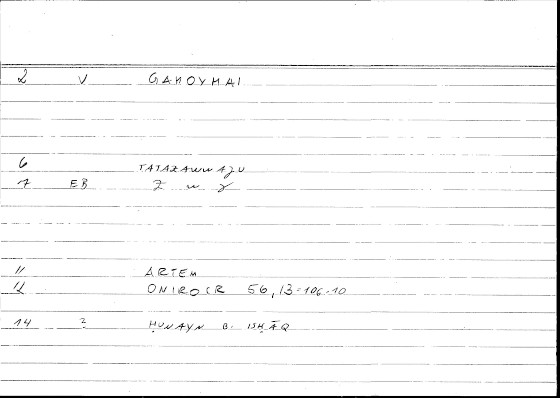 2 V ΓΑΜΟΥΜΑΙ
6 TATAZAWWAǦU
7 EB Z w ǧ
11 ARTEM
12 ONIROCR 56,13=106.10
14 2 ḤUNAYN B. ISḤĀQ